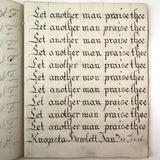 Let another man praise thee
Let another man praise thee
Let another man praise thee
Let another man praise thee
Let another man praise thee
Let another man praise thee
Let another man praise thee
Let another man praise thee
Augusta Hewlett Jan